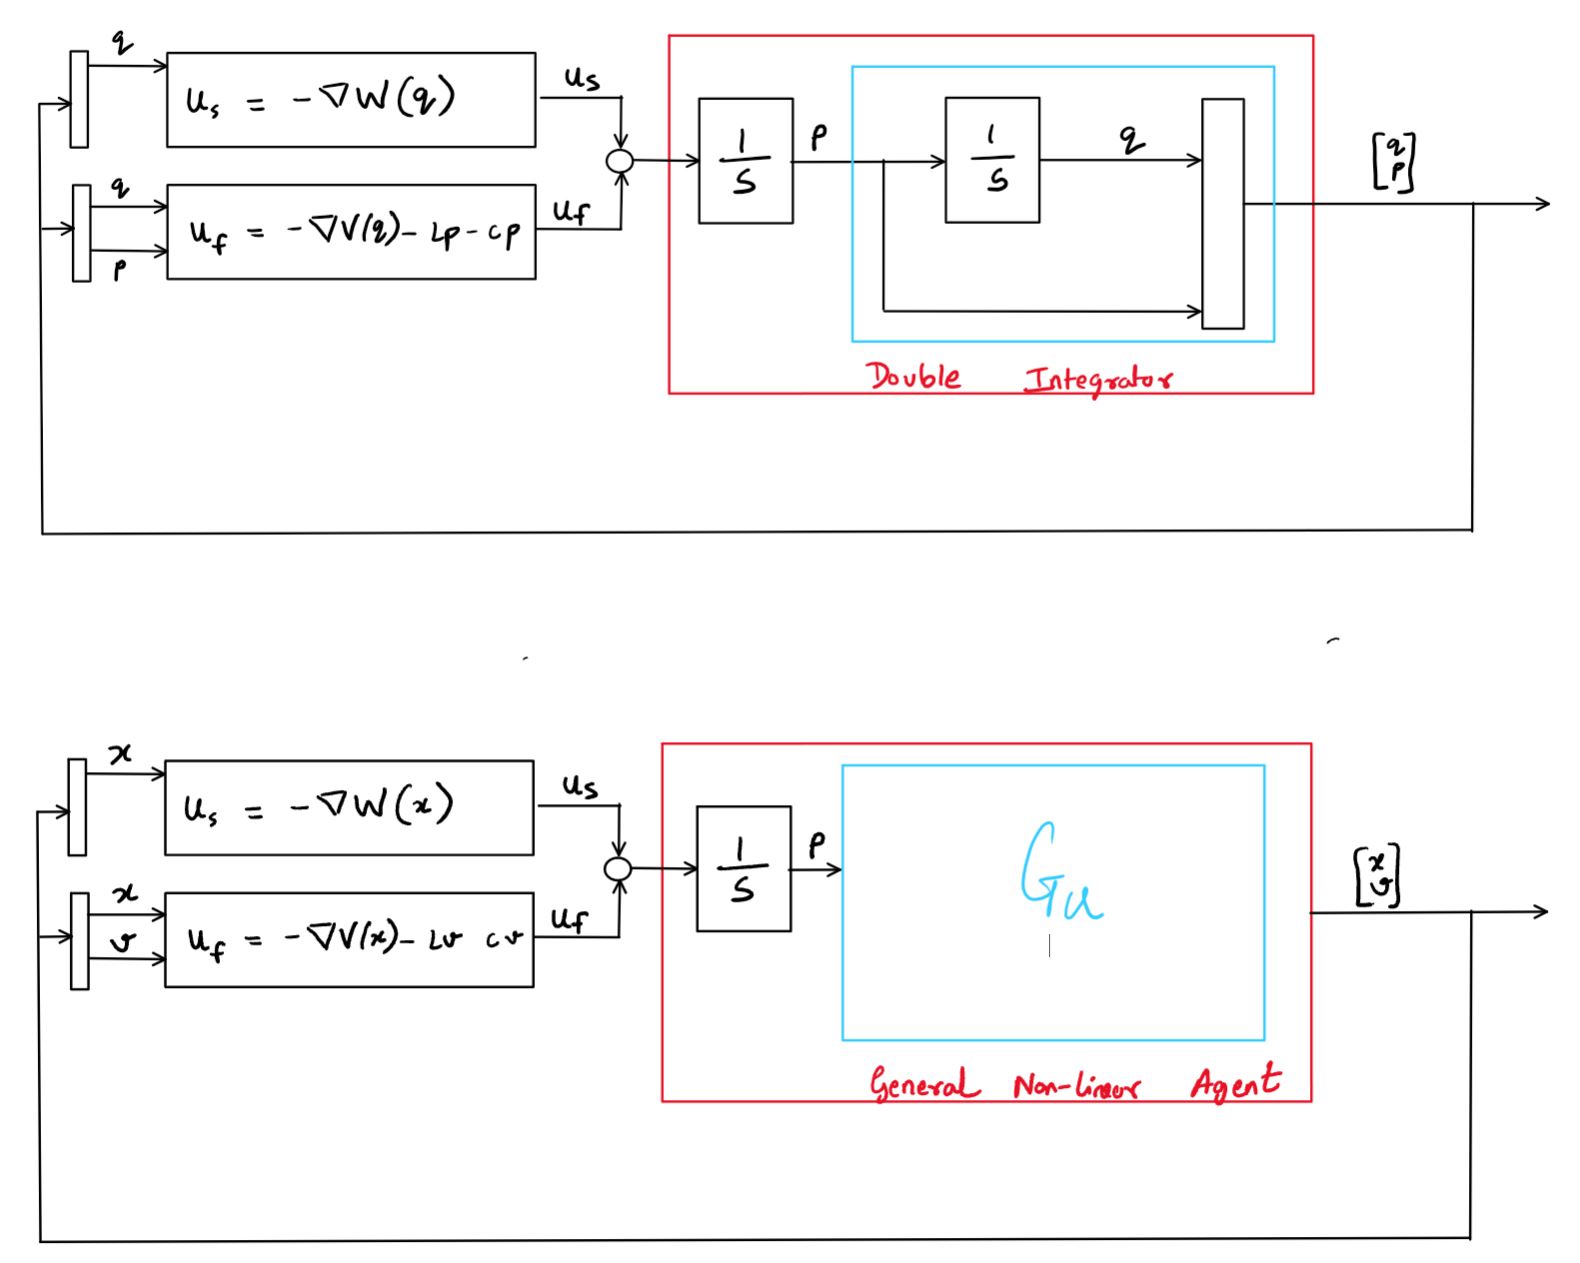 q
u_s = -∇W(q)
u_s
q
p
u_f = -∇V(q) - Lp - cp
u_f
1/s
p
1/s
q
[q p]
Double Integrator
x
u_s = -∇W(x)
u_s
x
v
u_f = -∇V(x) - Lv cv
u_f
1/s
p
G_u
[x v]
General Non-linear Agent